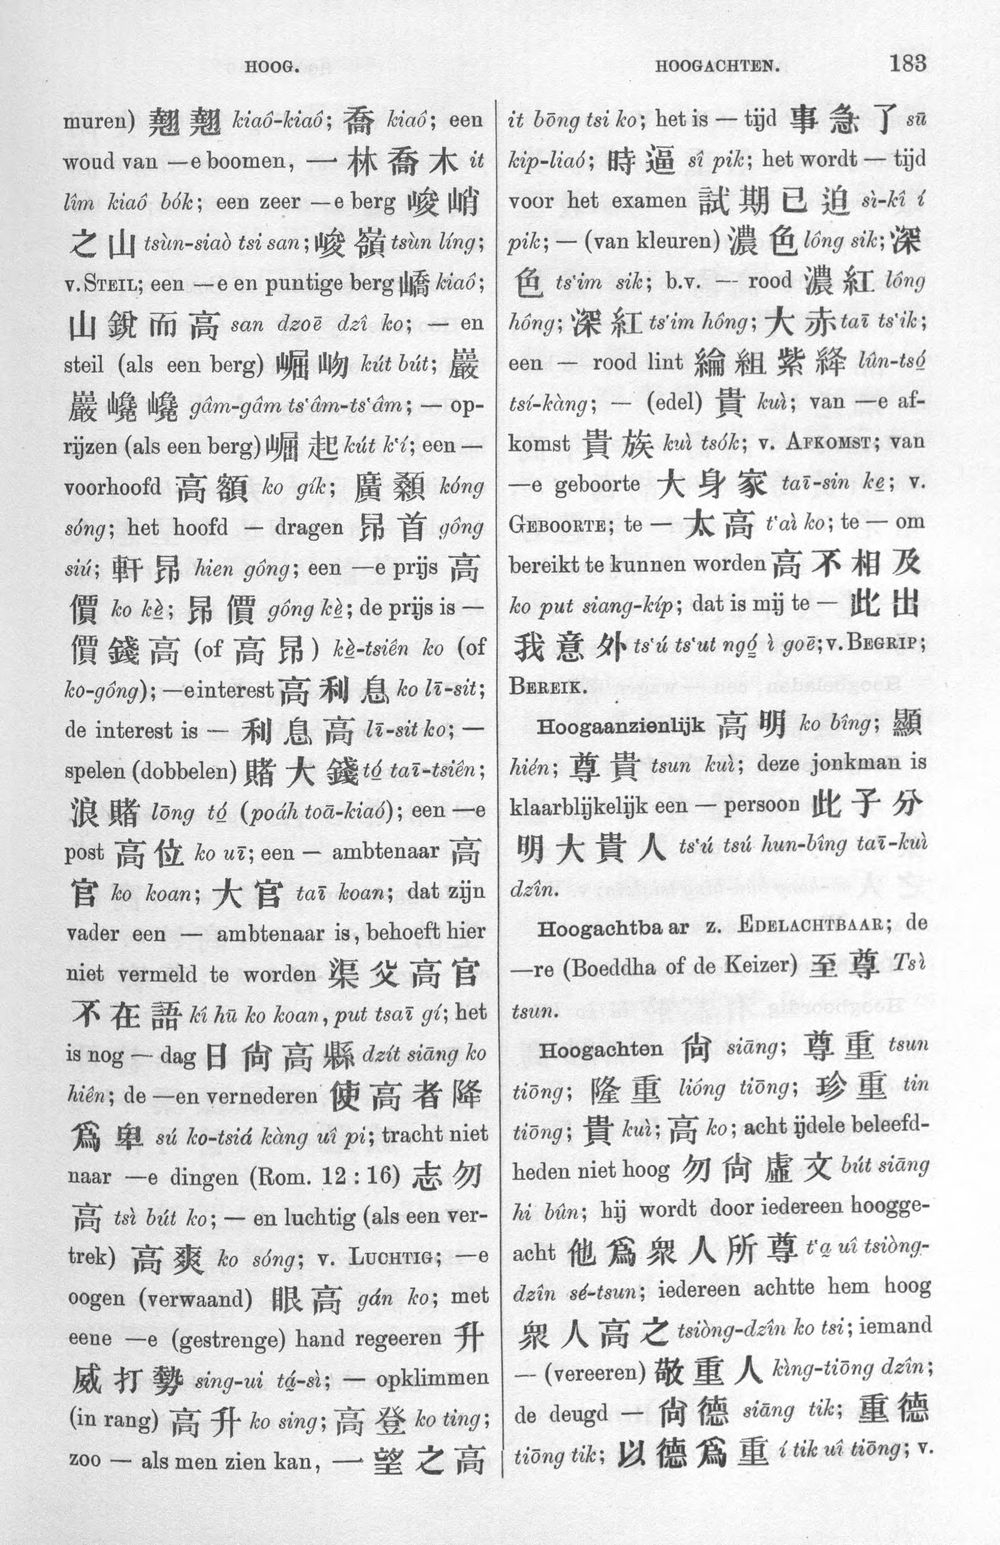 HOOG.
HOOGACHTEN. 183
muren) 翹翹 kiaô-kiaô; 喬 kiaô; een
woud van —e boomen, 一林喬木 it
lîm kiaô bók; een zeer —e berg 峻峭
之山 tsùn-siaò tsi san; 峻嶺 tsùn líng;
v. STEIL; een —e en puntige berg 嶠 kiaô;
山銳而高 san dzoē dzî ko; — en
steil (als een berg) 崛岉 kút bút; 嚴
嚴巉巉 gâm-gâm ts‘âm-ts‘âm; — op-
rijzen (als een berg) 崛起 kút k‘í; een —
voorhoofd 高額 ko gík; 廣顙 kóng
sóng; het hoofd — dragen 昂首 gông
siú; 軒昂 hien gông; een —e prijs 高
價 ko kè̤; 昂價 gông kè̤; de prijs is —
價錢高 (of 高昂) kè̤-tsiên ko (of
ko-gông); —e interest 高利息 ko lī-sit;
de interest is — 利息高 lī-sit ko; —
spelen (dobbelen) 賭大錢 tó̤ taī-tsiên;
浪賭 lōng tó̤ (poáh toā-kiaó); een —e
post 高位 ko uī; een — ambtenaar 高
官 ko koan; 大官 taī koan; dat zijn
vader een — ambtenaar is, behoeft hier
niet vermeld te worden 渠父高官
不在語 kî hū ko koan, put tsaī gí; het
is nog — dag 日尙高縣 dzít siāng ko
hiên; de —en vernederen 使高者降
爲卑 sú ko-tsiá kàng uî pi; tracht niet
naar —e dingen (Rom. 12 : 16) 志勿
高 tsì bút ko; — en luchtig (als een ver-
trek) 高爽 ko sóng; v. LUCHTIG; —e
oogen (verwaand) 眼高 gán ko; met
eene —e (gestrenge) hand regeeren 升
威打勢 sing-ui tá̤-sì; — opklimmen
(in rang) 高升 ko sing; 高登 ko ting;
zoo — als men zien kan, 一望之高
it bōng tsi ko; het is — tijd 事急了 sū
kip-liaó; 時逼 sî pik; het wordt — tijd
voor het examen 試期已迫 sì-kî í
pik; — (van kleuren) 濃色 lông sik; 深
色 ts‘im sik; b.v. — rood 濃紅 lông
hông; 深紅 ts‘im hông; 大赤 taī ts‘ik;
een — rood lint 綸組紫絳 lûn-tsó̤
tsí-kàng; — (edel) 貴 kuì; van —e af-
komst 貴族 kuì tsók; v. AFKOMST; van
—e geboorte 大身家 taī-sin ke̤; v.
GEBOORTE; te — 太高 t‘aì ko; te — om
bereikt te kunnen worden 高不相及
ko put siang-kíp; dat is mij te — 此出
我意外 ts‘ú ts‘ut ngó̤ ì goē; v. BEGRIP;
BEREIK.
Hoogaanzienlijk 高明 ko bîng; 顯
hién; 尊貴 tsun kuì; deze jonkman is
klaarblijkelijk een — persoon 此子分
明大貴人 ts‘ú tsú hun-bîng taī-kuì
dzîn.
Hoogachtbaar z. EDELACHTBAAR; de
—re (Boeddha of de Keizer) 至尊 Tsì
tsun.
Hoogachten 尙 siāng; 尊重 tsun
tiōng; 隆重 liông tiōng; 珍重 tin
tiōng; 貴 kuì; 高 ko; acht ijdele beleefd-
heden niet hoog 勿尙虛文 bút siāng
hi bûn; hij wordt door iedereen hoogge-
acht 他爲衆人所尊 t‘a̤ uî tsiòng-
dzîn sé-tsun; iedereen achtte hem hoog
衆人高之 tsiòng-dzîn ko tsi; iemand
— (vereeren) 敬重人 kìng-tiōng dzîn;
de deugd — 尙德 siāng tik; 重德
tiōng tik; 以德爲重 í tik uî tiōng; v.